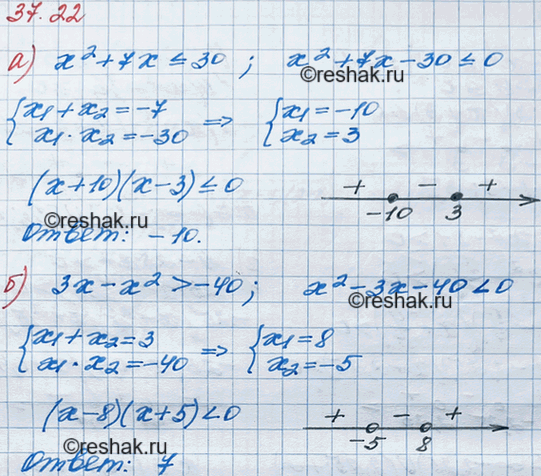 37.22
а) x² + 7x ≤ 30 ; x² + 7x - 30 ≤ 0
©reshak.ru
©reshak.ru
{x₁ + x₂ = -7 => {x₁ = -10
x₁ · x₂ = -30 x₂ = 3
(x + 10)(x - 3) ≤ 0 + - +
-10 3
©reshak.ru
Ответ: -10.
б) 3x - x² > -40 ; x² - 3x - 40 < 0
©reshak.ru
{x₁ + x₂ = 3 => {x₁ = 8
x₁ · x₂ = -40 x₂ = -5
(x - 8)(x + 5) < 0 + - +
-5 8
©reshak.ru
©reshak.ru
Ответ: 7